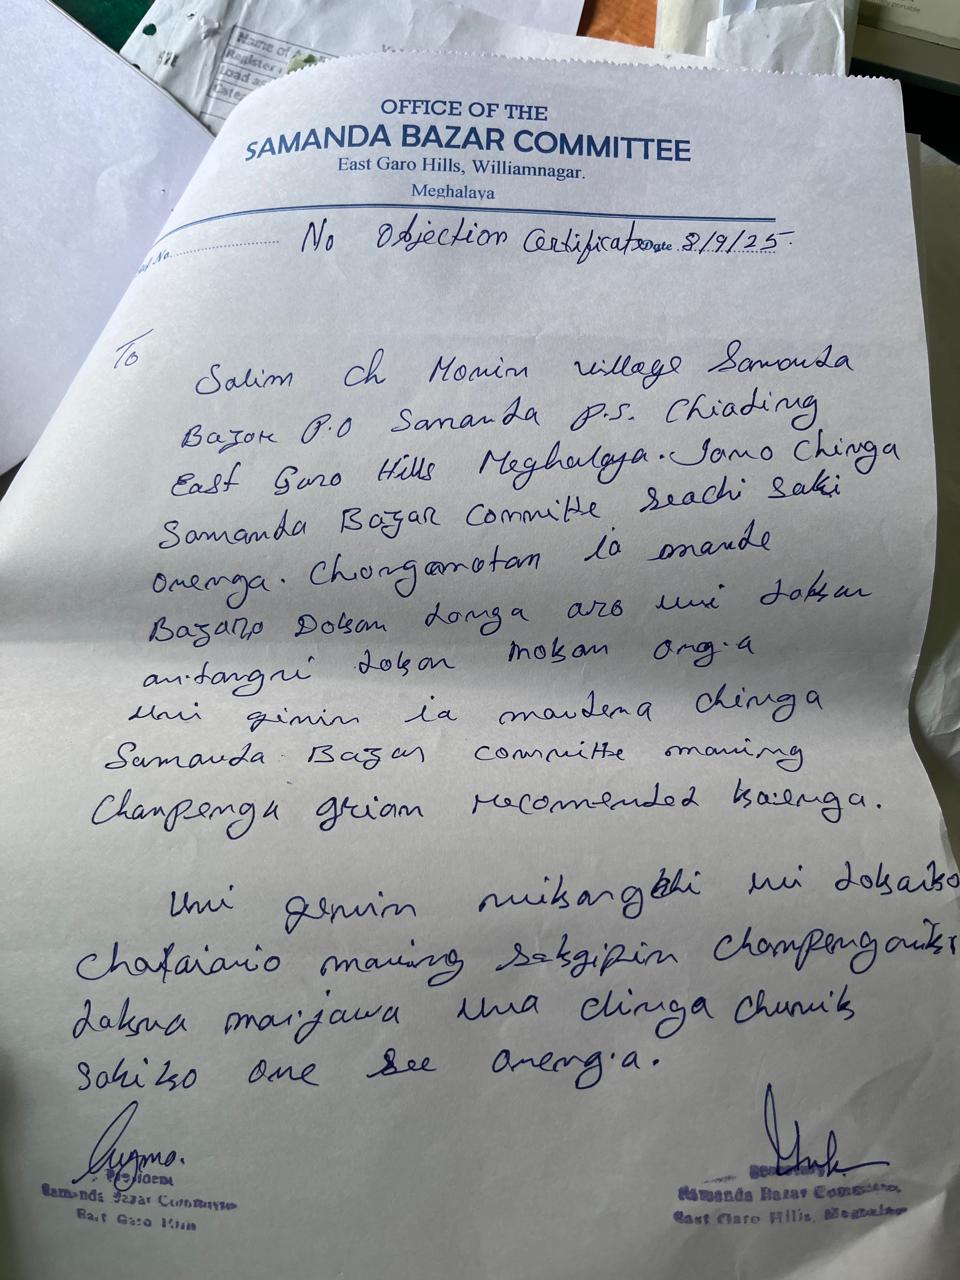 Name of A
Register
Load as
Cate
OFFICE OF THE
SAMANDA BAZAR COMMITTEE
East Garo Hills, Williamnagar.
Meghalaya
No. No Objection Certificate Date 8/9/25.
To
Salim Ch Momin village Samanda
Bazar P.O Samanda P.S. Chiading
East Garo Hills Meghalaya. Iano Chinga
Samanda Bazar Committe seachi saki
onenga. Chongamotan ia mande
Bazarao Dokan donga aro uni dokan
an.tangni dokan moksan ong.a
Uni gimin ia mandena chinga
Samanda Bazar committe maming
Champenga grian recomended ka.enga.
Uni gimin mikangchi uni dokako
chataiaio maming saksgipin champenganiko
daksna man.jawa una chinga chunik
sakiko one see oneng.a.
President
Samanda Bazar Committee
East Garo Hills
Secretary
Samanda Bazar Committee,
East Garo Hills, Meghalaya